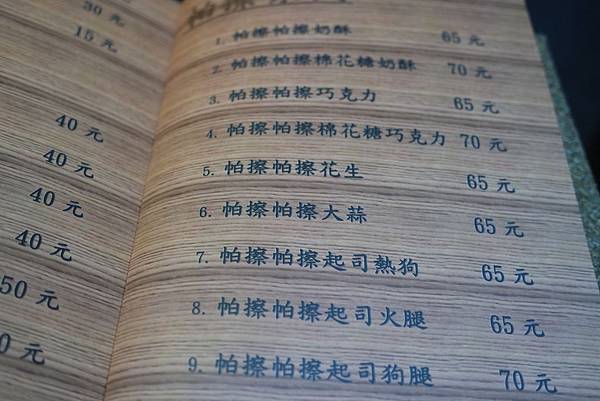 30 元
15 元
40 元
40 元
40 元
40 元
50 元
0 元
帕擦
1. 帕擦帕擦奶酥 65 元
2. 帕擦帕擦棉花糖奶酥 70 元
3. 帕擦帕擦巧克力 65 元
4. 帕擦帕擦棉花糖巧克力 70 元
5. 帕擦帕擦花生 65 元
6. 帕擦帕擦大蒜 65 元
7. 帕擦帕擦起司熱狗 65 元
8. 帕擦帕擦起司火腿 65 元
9. 帕擦帕擦起司狗腿 70 元